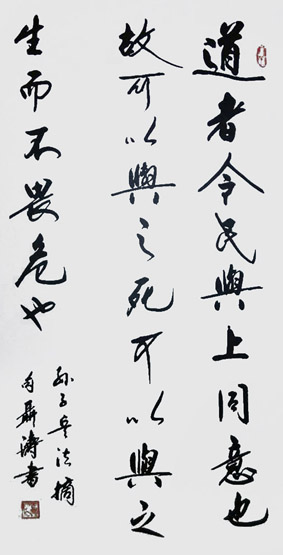 道者令民與上同意也
故可以與之死可以與之
生而不畏危也
孫子兵法摘
聶濤書